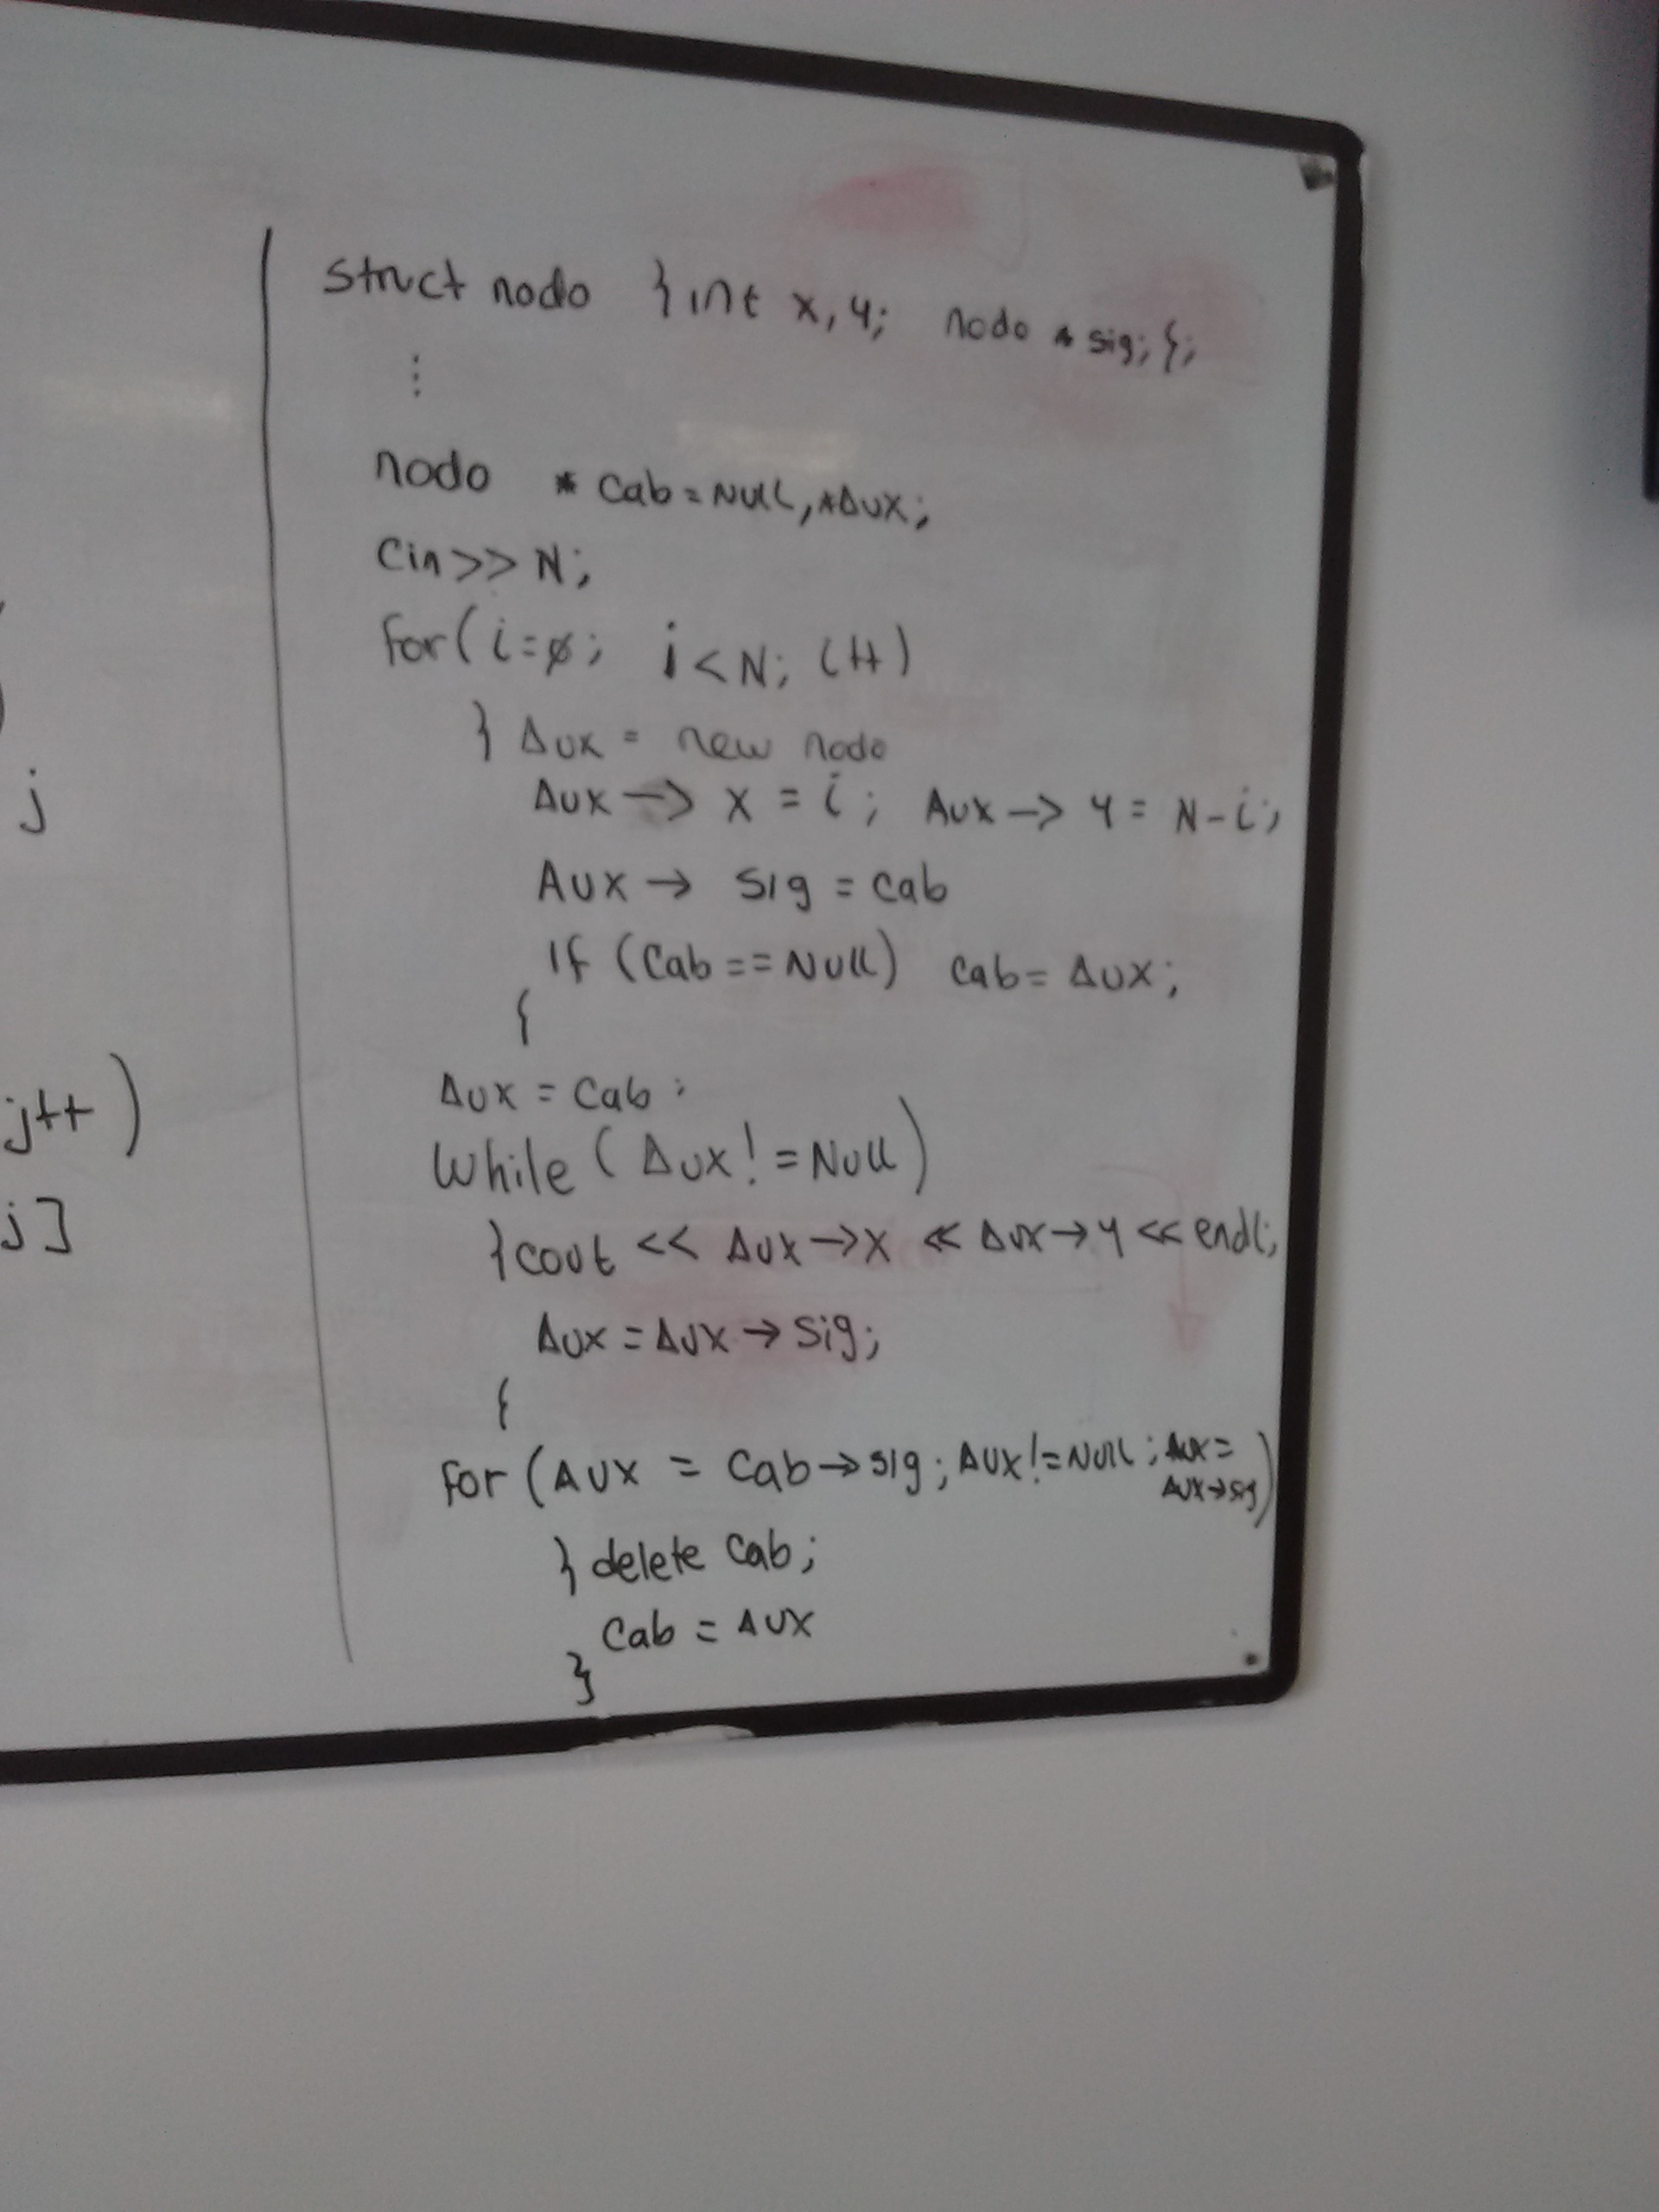 struct nodo } int x, y; nodo * sig; {;
⋮
nodo * cab = NULL, *AUX;
cin >> N;
for (i=0; i<N; i++)
} AUX = new nodo
AUX -> x = i; AUX -> y = N-i;
AUX -> sig = cab
If (cab == NULL) cab = AUX;
{
AUX = cab;
while (AUX != NULL)
} cout << AUX -> x << AUX -> y << endl;
AUX = AUX -> sig;
{
for (AUX = cab -> sig; AUX != NULL; AUX =
AUX -> sig)
} delete cab;
cab = AUX
}
j
j++ )
j ]